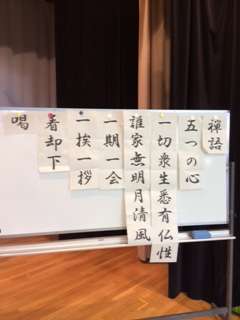 禅語
五つの心
一切衆生悉有仏性
誰家無明月清風
一期一会
一挨一拶
看却下
喝